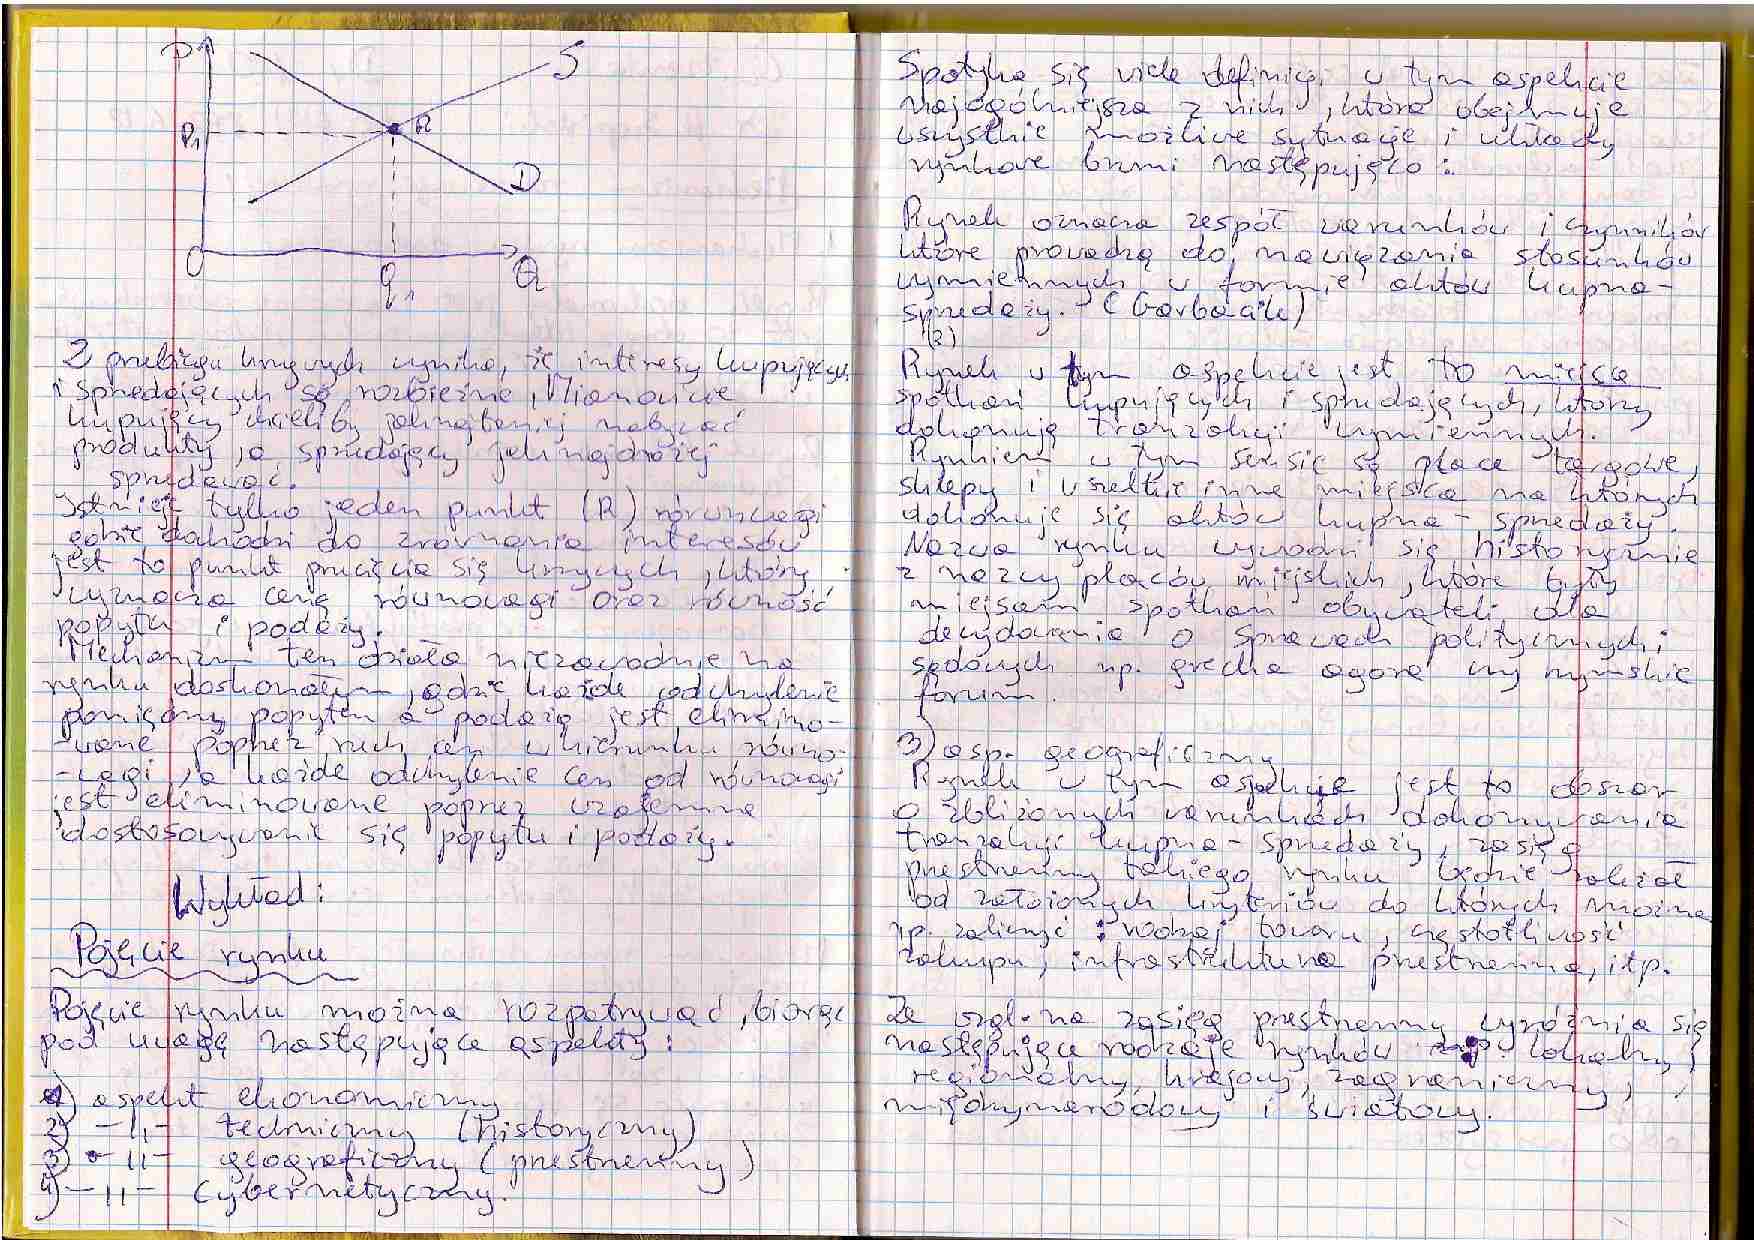 P
S
P1
R
D
O
q1
Q
Z przebiegu krzywych wynika, że interesy kupujących
i sprzedających są rozbieżne, Mianowicie
kupujący chcieliby jaknajtaniej nabywać
produkty, a sprzedający jaknajdrożej
sprzedawać.
Istnieje tylko jeden punkt (R) równowagi
gdzie dochodzi do zrównania interesów
jest to punkt przecięcia się krzywych, który
wyznacza cenę równowagi oraz równość
popytu i podaży.
Mechanizm ten działa niezawodnie na
rynku doskonałym, gdzie każde odchylenie
pomiędzy popytem a podażą jest elimino-
-wane poprzez ruch cen w kierunku równo-
-wagi, a każde odchylenie cen od równowagi
jest eliminowane poprzez wzajemne
dostosowywanie się popytu i podaży.
Wykład:
Pojęcie rynku
Pojęcie rynku można rozpatrywać, biorąc
pod uwagę następujące aspekty:
1) aspekt ekonomiczny
2) -11- techniczny (historyczny)
3) -11- geograficzny (przestrzenny)
4) -11- cybernetyczny.
Spotyka się wiele definicji w tym aspekcie
najogólniejsza z nich, która obejmuje
wszystkie możliwe sytuacje i układy
rynkowe brzmi następująco:
Rynek oznacza zespół warunków i czynników
które prowadzą do nawiązania stosunków
wymiennych w formie aktów kupna-
sprzedaży. (Garbacik)
(2)
Rynek w tym aspekcie jest to miejsce
spotkań kupujących i sprzedających, którzy
dokonują tranzakcji wymiennych.
Rynkiem w tym sensie są place targowe,
sklepy i wszelkie inne miejsca na których
dokonuje się aktów kupna-sprzedaży.
Nazwa rynku wywodzi się historycznie
z nazwy placów miejskich, które były
miejscem spotkań obywateli dla
decydowania o sprawach politycznych i
sądowych np. grecka agora czy rzymskie
forum.
3) asp. geograficzny
Rynek w tym aspekcie jest to obszar
o zbliżonych warunkach dokonywania
tranzakcji kupna-sprzedaży, zasięg
przestrzenny takiego rynku będzie zależał
od założonych kryteriów do których można
np. zaliczyć: rodzaj towaru, częstotliwość
zakupu, infrastruktura przestrzenna, itp.
Ze wzgl. na zasięg przestrzenny wyróżnia się
następujące rodzaje rynków lokalny,
regionalny, krajowy, zagraniczny,
międzynarodowy i światowy.